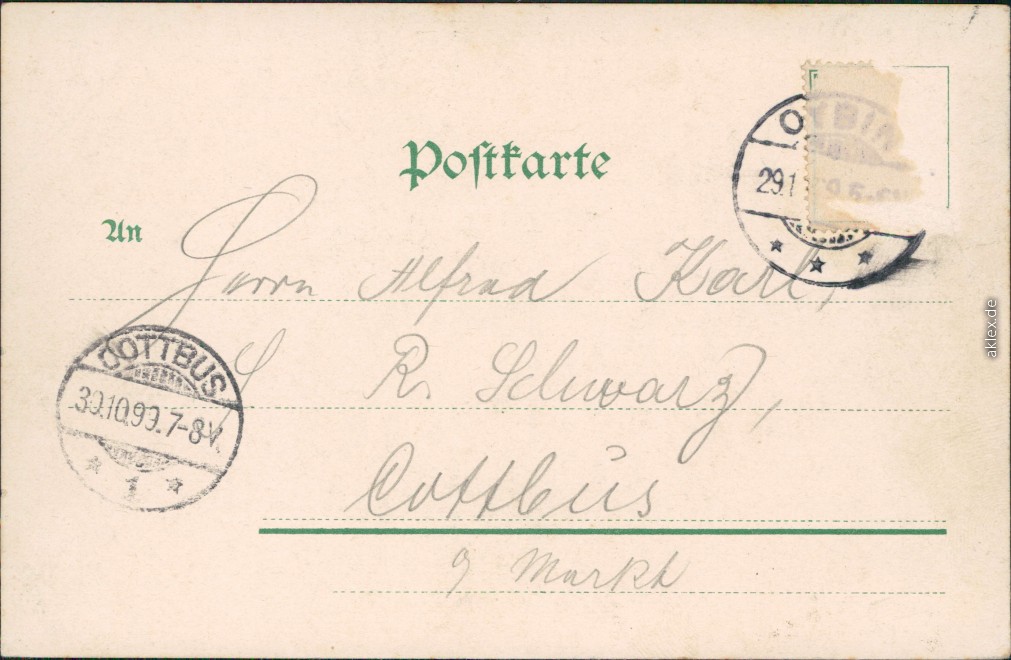 Postkarte
OYBIN
29.1
An
Herrn Alfred Karl,
R. Schwarz,
COTTBUS
30.10.99.7-8V.
1
Cottbus
9 Markt
aklex.de